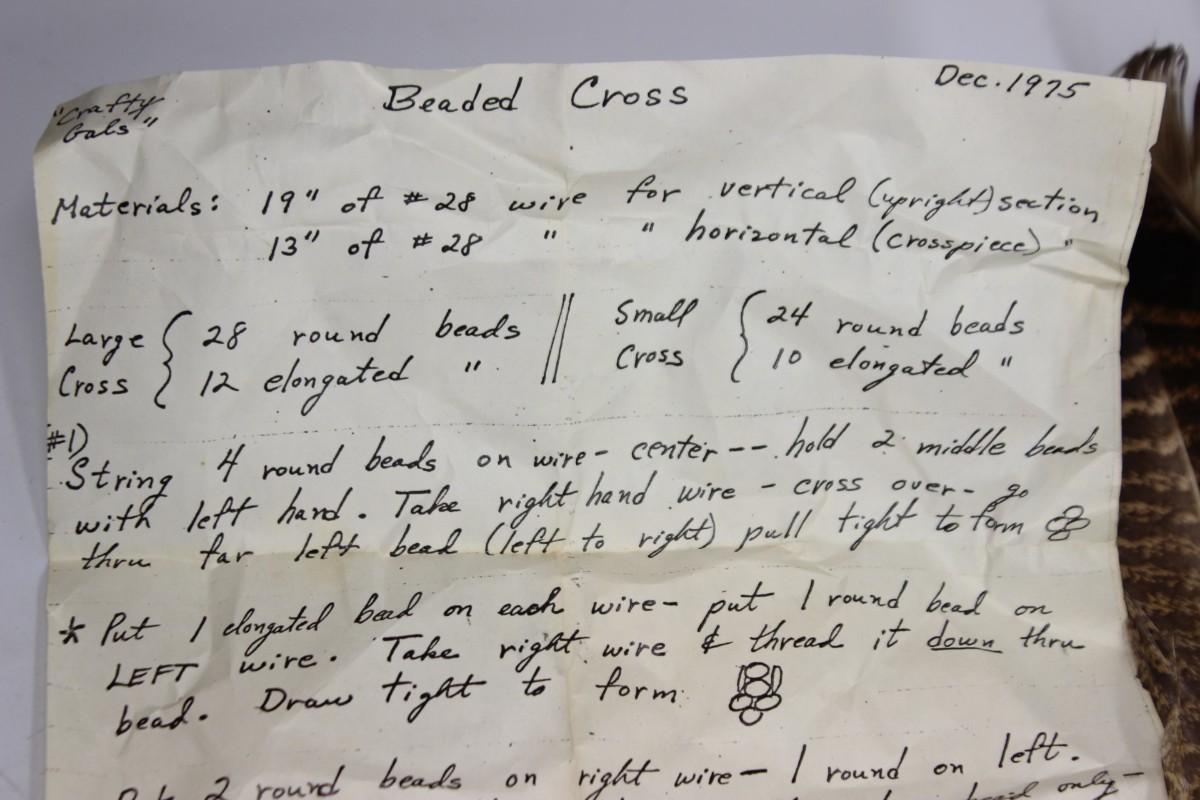 "Crafty
Gals"
Beaded Cross
Dec. 1975
Materials: 19" of #28 wire for vertical (upright) section
13" of #28 " " horizontal (crosspiece) "
Large Cross { 28 round beads
12 elongated "
Small Cross { 24 round beads
10 elongated "
#1)
String 4 round beads on wire - center -- hold 2 middle beads
with left hand. Take right hand wire - cross over - go
thru far left bead (left to right) pull tight to form
* Put 1 elongated bead on each wire - put 1 round bead on
LEFT wire. Take right wire & thread it down thru
bead. Draw tight to form
2 round beads on right wire - 1 round on left.
only -